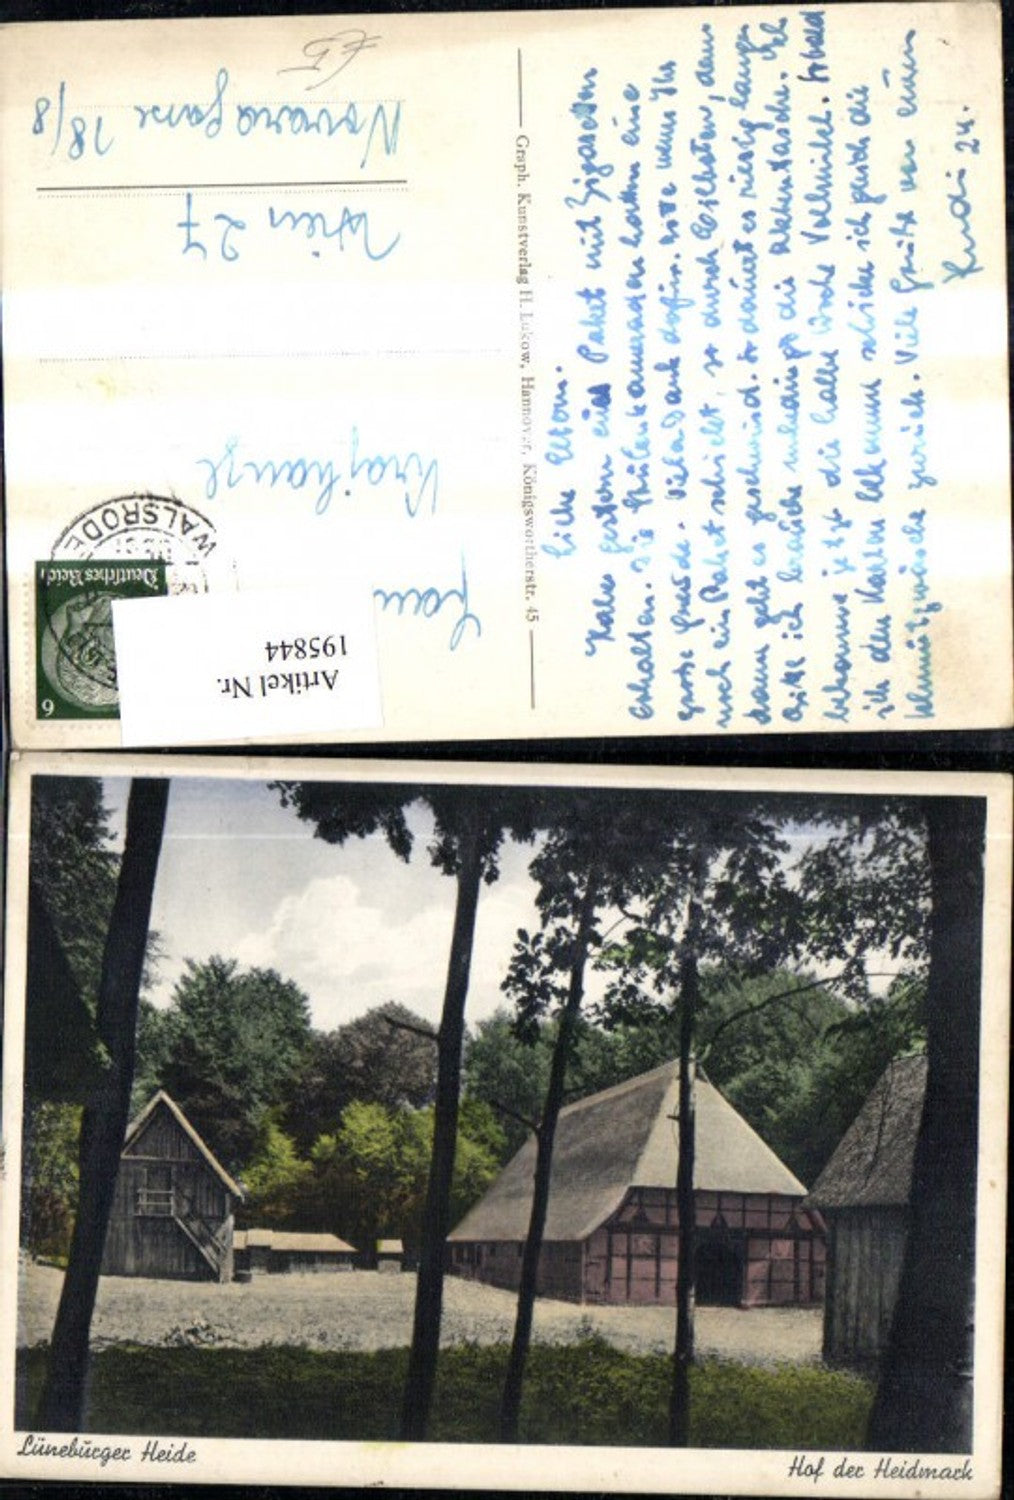 Liebe Eltern.
Habe gestern euer Paket mit Zigaretten
Erhalten. Die Stubenkameraden hatten eine
grosse Freude. Vielen Dank dafür. Bitte wenn Ihr
noch ein Paket schickt, so durch Eilboten, denn
dann geht es geschwind. So dauert es riesig lange
Bitte ich brauche unbedingt die Aktentasche. Ich
bekomme jetzt die halbe Woche Vollmilch. Sobald
ich den Karton bekomme schicke ich gleich die
Schmutzwäsche zurück. Viele Grüße von eurem
Rudi 24.
Graph. Kunstverlag H. Lukow, Hannover, Königswortherstr. 45
Frau
Krajhanzl
Wien 27
Novaragasse 18/8
€5
Deutsches Reich
6
WALSRODE
Artikel Nr.
195844
Lüneburger Heide
Hof der Heidmark